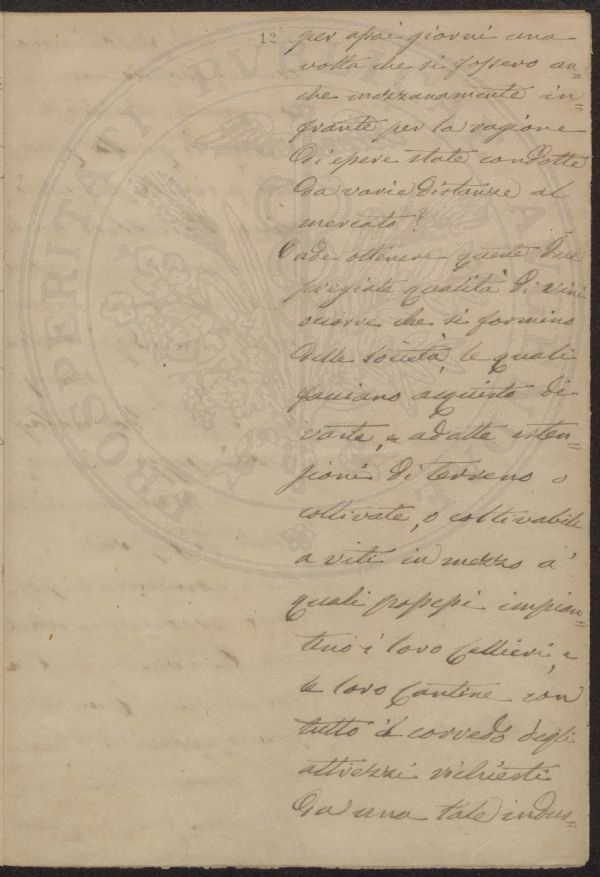 12
per assai giorni una
volta che si fossero an=
che mezzanamente in=
frante per la ragione
di essere state condotte
da varie distanze al
mercato?
Onde ottenere queste due
pregiate qualità di vini
occorre che si formino
delle società, le quali
facciano acquisto di
vaste, e adatte esten=
sioni di terreno o
coltivate, o coltivabili
a viti in mezzo a'
quali possessi impian=
tino i loro Cellieri, e
le loro Cantine con
tutto il corredo degli
attrezzi richiesti
da una tale indus=
PROSPERITATI PUBLICAE